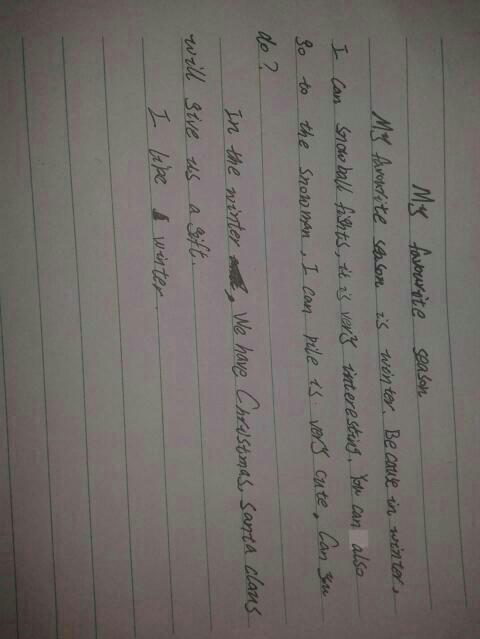 My favourite season
My favourite season is winter. Because in winter,
I can snowball fights, it is very interesting. You can also
go to the snowman, I can pile is very cute, Can you
do?
In the winter, We have Christmas, Santa claus
will give us a gift.
I like winter.